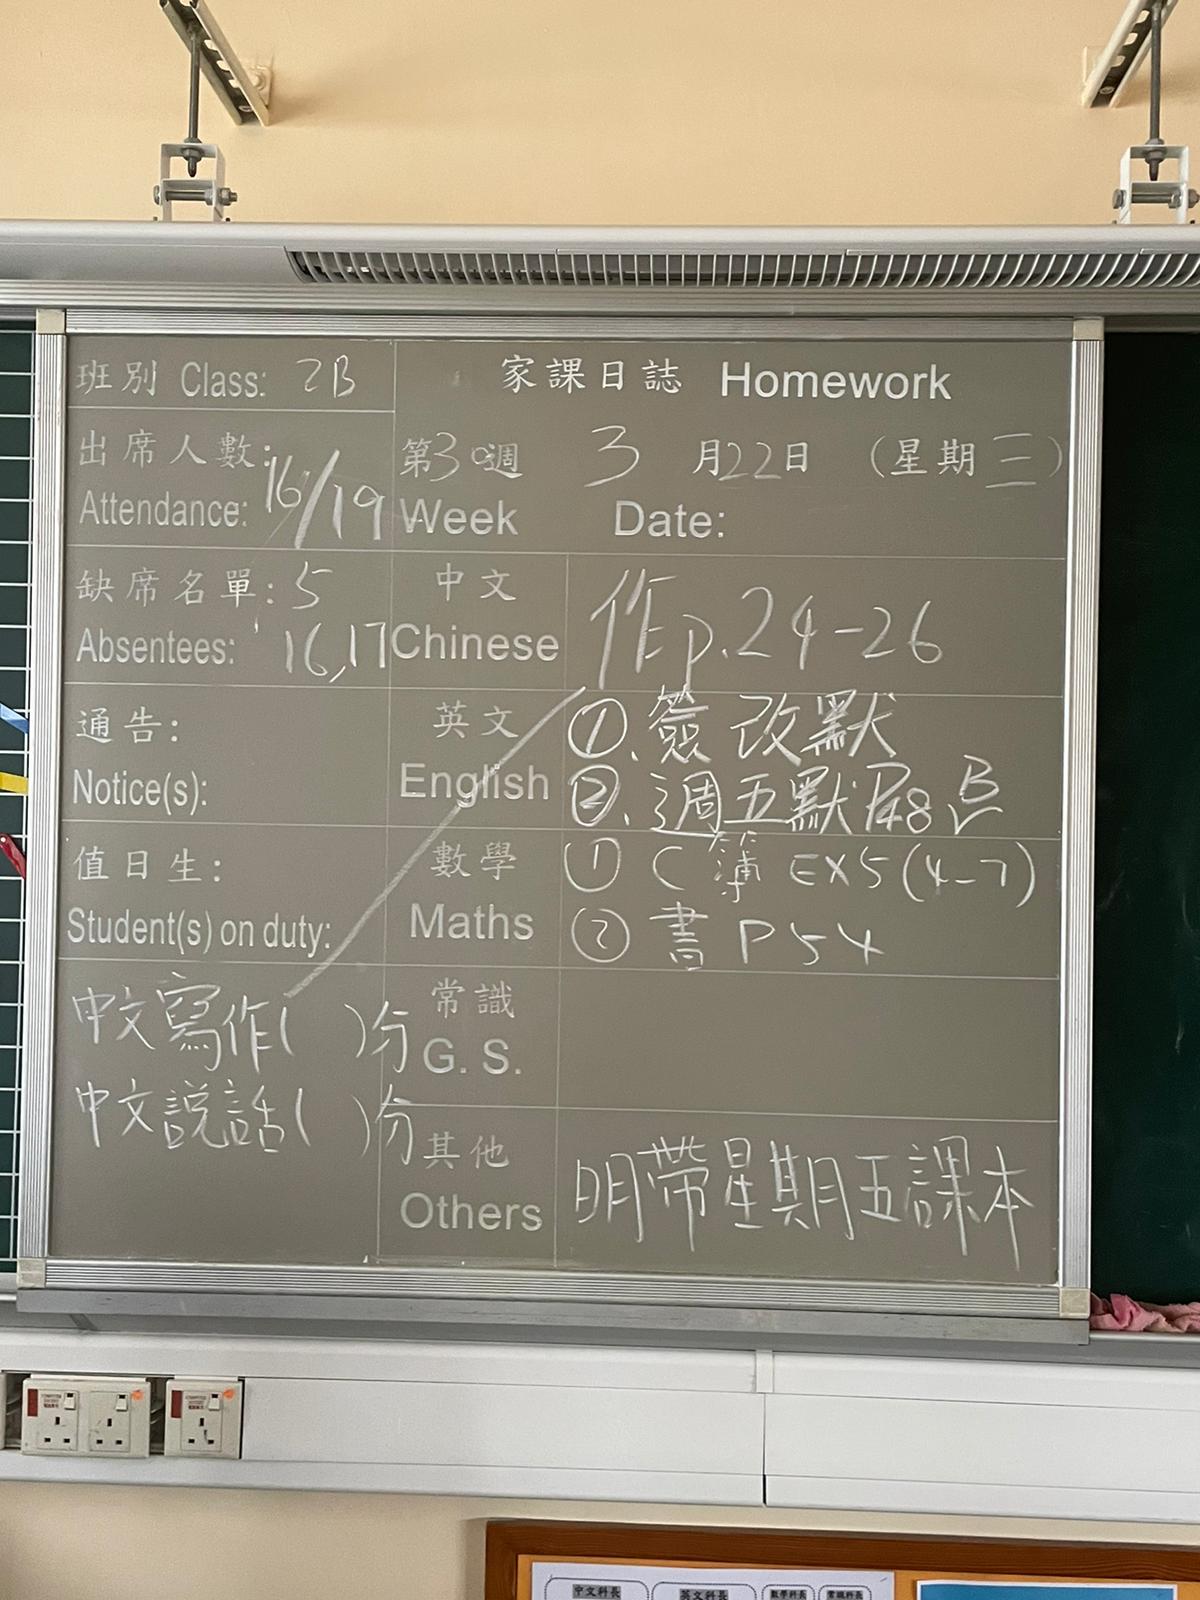 班別 Class: 2B
家課日誌 Homework
出席人數:
Attendance: 16/19
第30週 3月22日 (星期三)
Week Date:
缺席名單: 5
Absentees: 16,17
中文
Chinese
作p.24-26
通告:
Notice(s):
英文
English
①.簽改默
②.週五默P48 B
值日生:
Student(s) on duty:
數學
Maths
① C簿 EX5(4-7)
② 書 P54
中文寫作( )分
中文説話( )分
常識
G. S.
其他
Others
明帶星期五課本
中文科長
英文科長
數學科長
常識科長